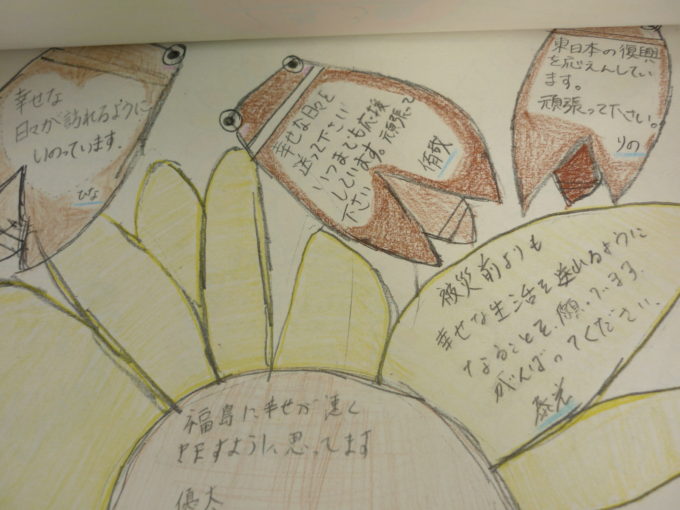 幸せな
日々が訪れるように
いのっています.
ひな
幸せな日々を
送って下さい
いつまでも応援
しています。頑張って
下さい
侑哉
東日本の復興
を応えんしてい
ます。
頑張って下さい。
りの
被災前よりも
幸せな生活を送れるように
なることを、願ってます.
がんばってください.
泰光
福島に幸せが速く
すように思ってます
優大